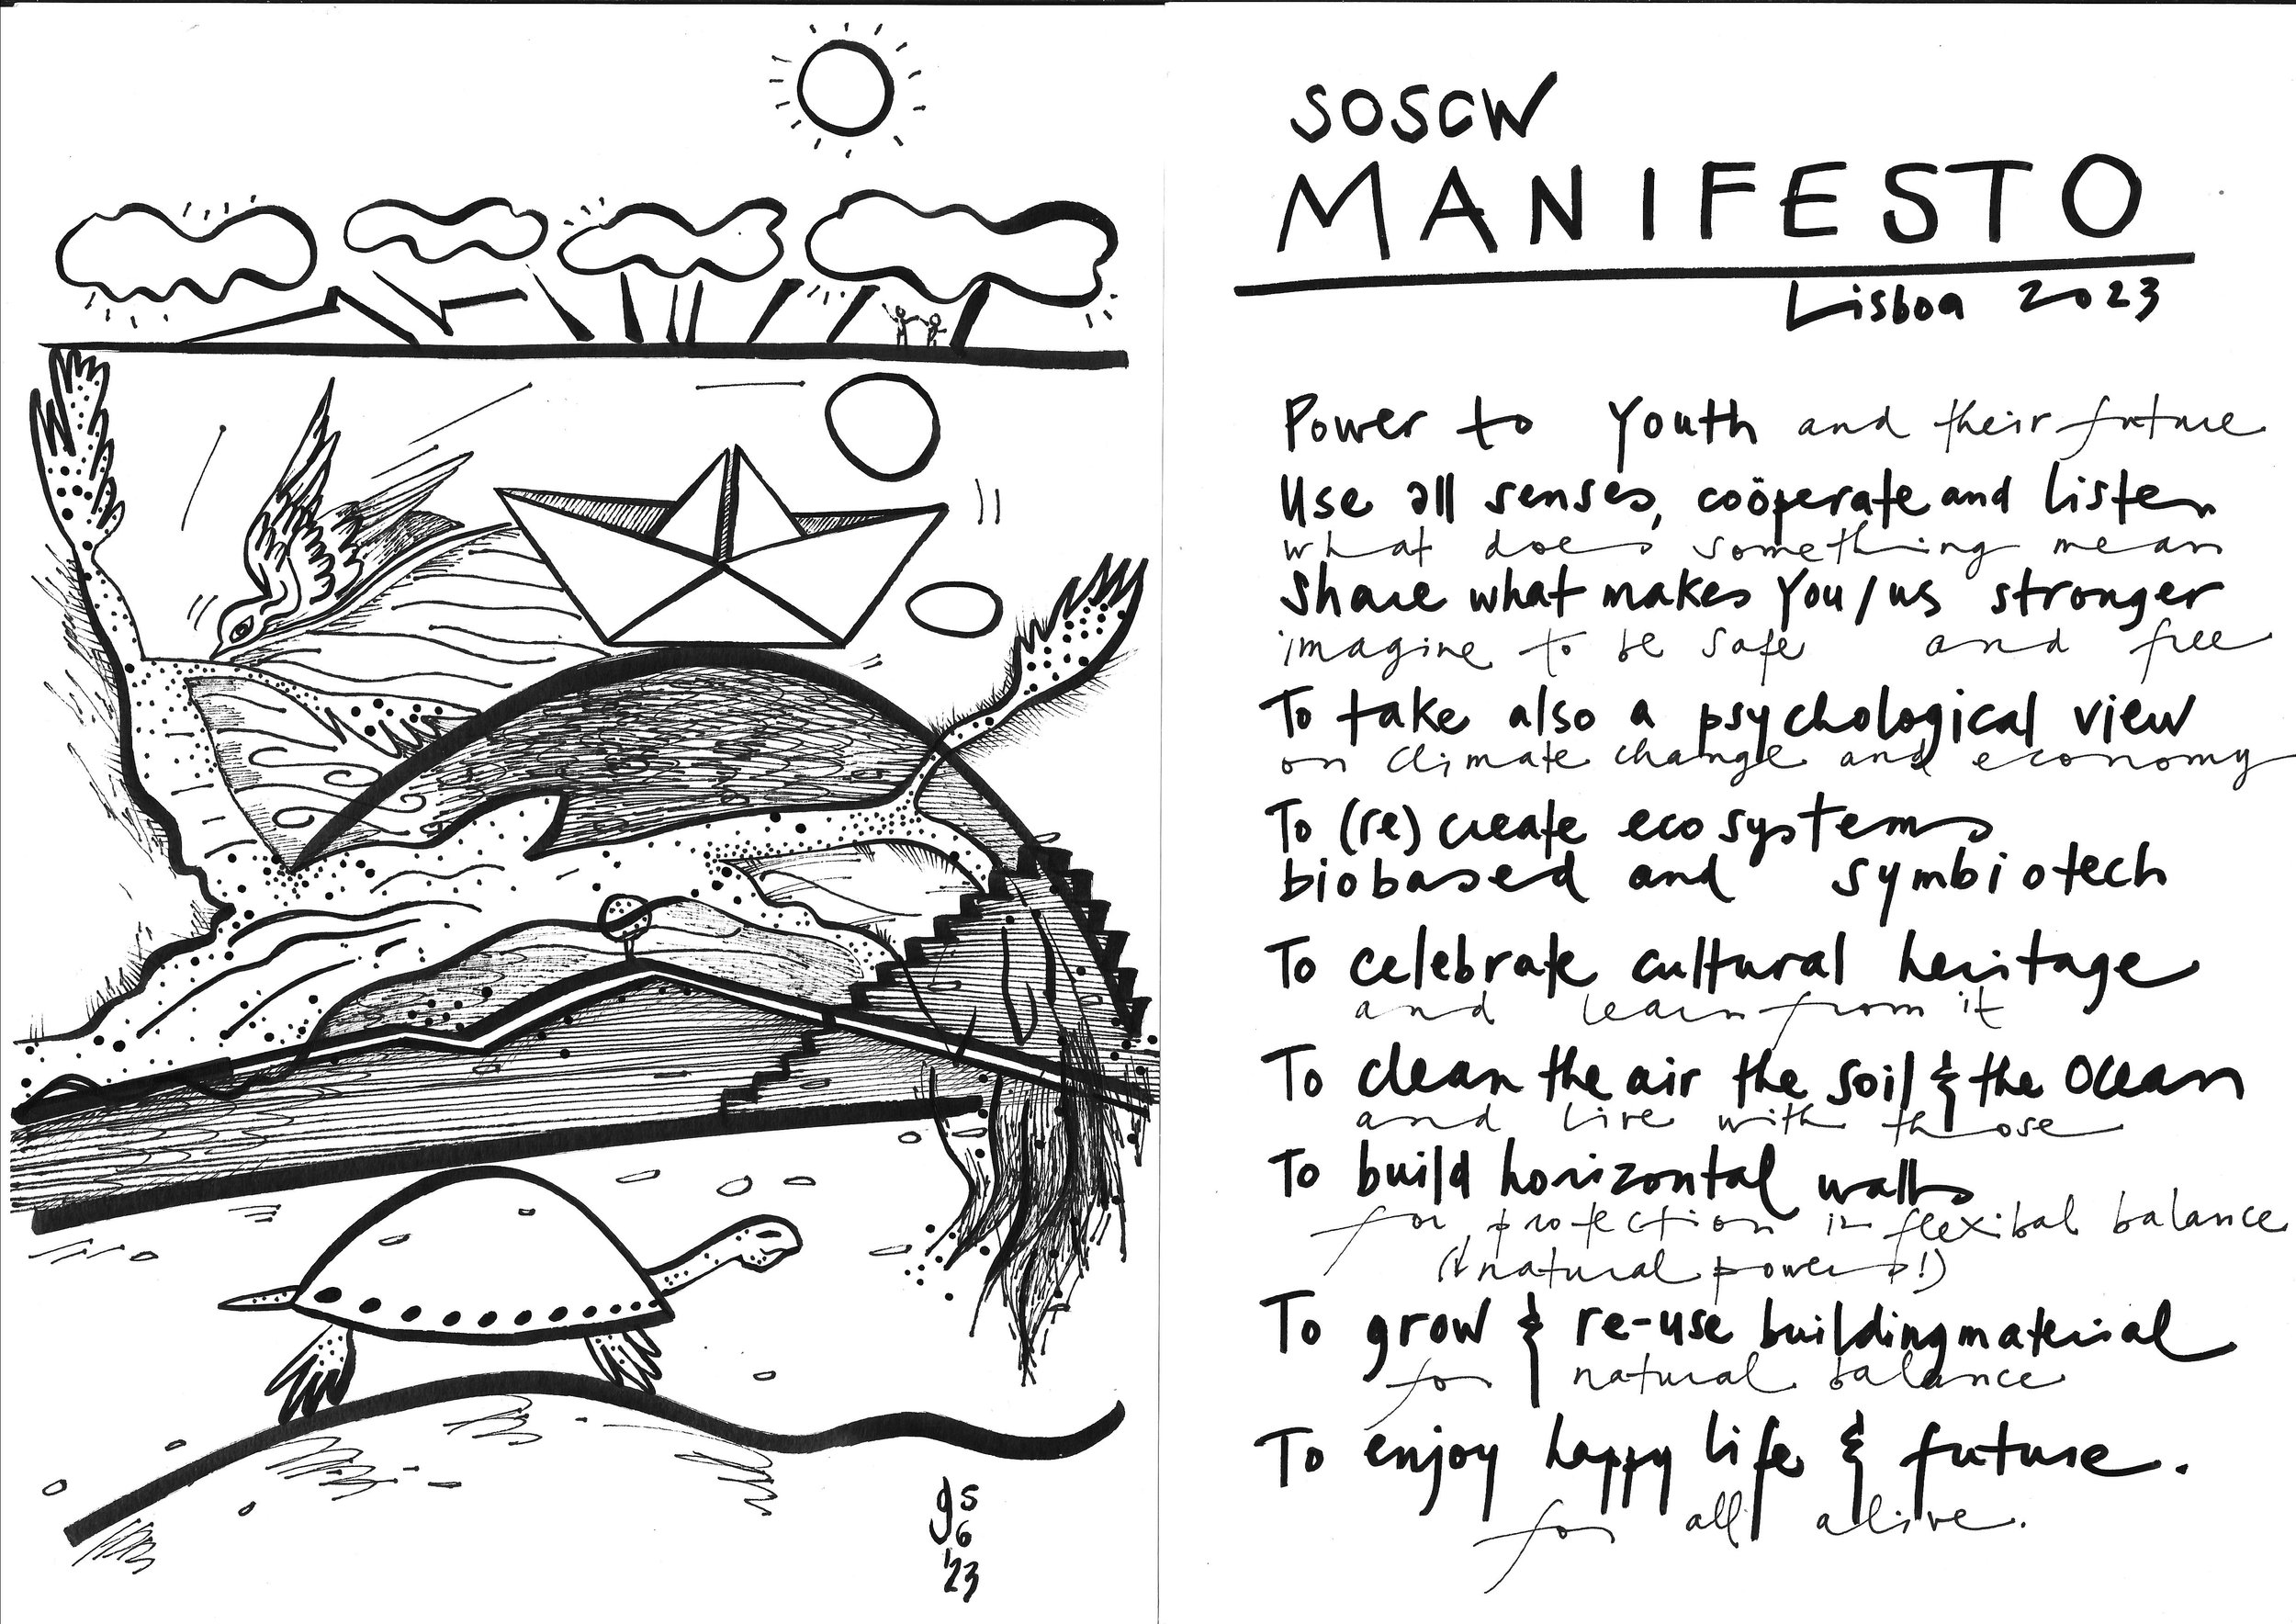 SOSCW
MANIFESTO
Lisboa 2023
Power to Youth and their future
Use all senses, coöperate and listen
what does something mean
Share what makes You/us stronger
imagine to be safe and free
To take also a psychological view
on climate change and economy
To (re)create ecosystems
biobased and symbiotech
To celebrate cultural heritage
and learn from it
To clean the air the soil & the Ocean
and live with those
To build horizontal walls
for protection in flexibal balance
(& natural powers!)
To grow & re-use buildingmaterial
for natural balance
To enjoy happy life & future.
for all alive.
gs
6
'23